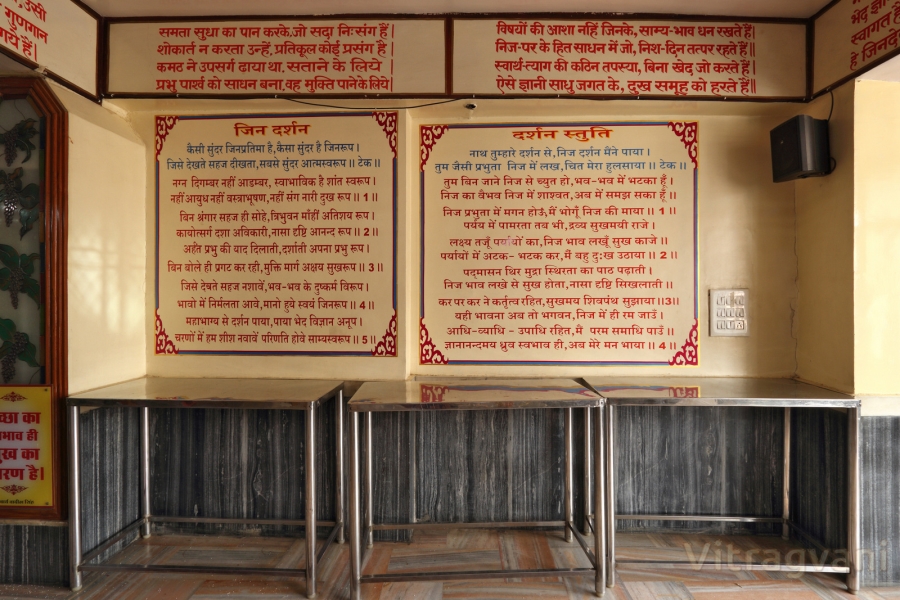 उसी
गुणगान
गये हैं।
समता सुधा का पान करके,जो सदा निःसंग हैं
शोकार्त न करता उन्हें,प्रतिकूल कोई प्रसंग है
कमठ ने उपसर्ग ढाया था, सताने के लिये
प्रभु पार्श्व को साधन बना,वह मुक्ति पाने के लिये
विषयों की आशा नहिं जिनके, साम्य-भाव धन रखते हैं
निज-पर के हित साधन में जो, निश-दिन तत्पर रहते हैं
स्वार्थ-त्याग की कठिन तपस्या, बिना खेद जो करते हैं
ऐसे ज्ञानी साधु जगत के, दुख समूह को हरते हैं
जिन दर्शन
कैसी सुंदर जिनप्रतिमा है,कैसा सुंदर है जिनरूप।
जिसे देखते सहज दीखता,सबसे सुंदर आत्मस्वरूप॥ टेक॥
नग्न दिगम्बर नहीं आडम्बर, स्वाभाविक है शांत स्वरूप।
नहीं आयुध नहीं वस्त्राभूषण,नहीं संग नारी दुख रूप॥ 1॥
बिन श्रंगार सहज ही सोहे,त्रिभुवन मांहीं अतिशय रूप।
कायोत्सर्ग दशा अविकारी,नासा दृष्टि आनन्द रूप॥ 2॥
अर्हंत प्रभु की याद दिलाती,दर्शाती अपना प्रभु रूप।
बिन बोले ही प्रगट कर रही,मुक्ति मार्ग अक्षय सुखरूप॥ 3॥
जिसे देखते सहज नशावें,भव-भव के दुष्कर्म विरूप।
भावो में निर्मलता आवे,मानो हुये स्वयं जिनरूप॥ 4॥
महाभाग्य से दर्शन पाया,पाया भेद विज्ञान अनूप।
चरणों में हम शीश नवावें परिणति होवे साम्यस्वरूप॥ 5॥
दर्शन स्तुति
नाथ तुम्हारे दर्शन से,निज दर्शन मैंने पाया।
तुम जैसी प्रभुता निज में लख,चित मेरा हुलसाया॥ टेक॥
तुम बिन जाने निज से च्युत हो,भव-भव में भटका हूँ।
निज का वैभव निज में शाश्वत,अब में समझ सका हूँ॥
निज प्रभुता में मगन होऊं,मैं भोगूँ निज की माया॥ 1॥
पर्यय में पामरता तब भी,द्रव्य सुखमयी राजे।
लक्ष्य तजूँ पर्यायों का,निज भाव लखूँ सुख काजे॥
पर्यायों में अटक-भटक कर,मैं बहु दु:ख उठाया॥ 2॥
पद्मासन थिर मुद्रा स्थिरता का पाठ पढ़ाती।
निज भाव लखे से सुख होता,नासा दृष्टि सिखलाती॥
कर पर कर ने कर्तृत्व रहित,सुखमय शिवपंथ सुझाया॥3॥
यही भावना अब तो भगवन,निज में ही रम जाउँ।
आधि-व्याधि-उपाधि रहित,मैं परम समाधि पाउँ॥
ज्ञानानन्दमय ध्रुव स्वभाव ही,अब मेरे मन भाया॥ 4॥
Vitragvani